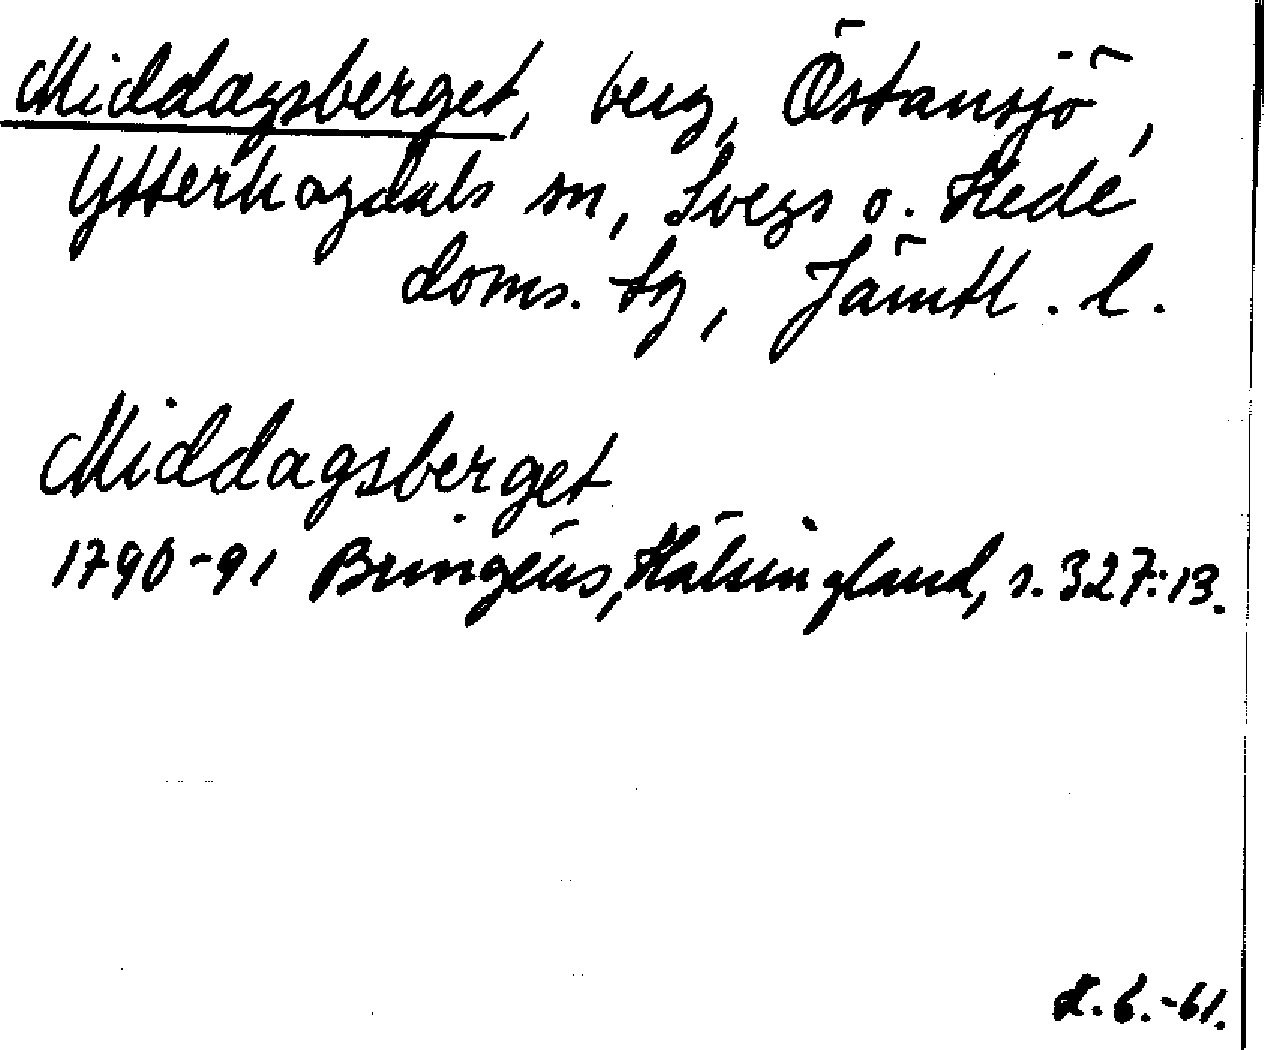 Middagsberget, berg, Östansjö,
Ytterhogdals sn, Svegs o. Hede
doms. tg, Jämtl. l.
Middagsberget
1790-91 Bringéus, Hälsingland, s. 327:13.
H. 6.-61.